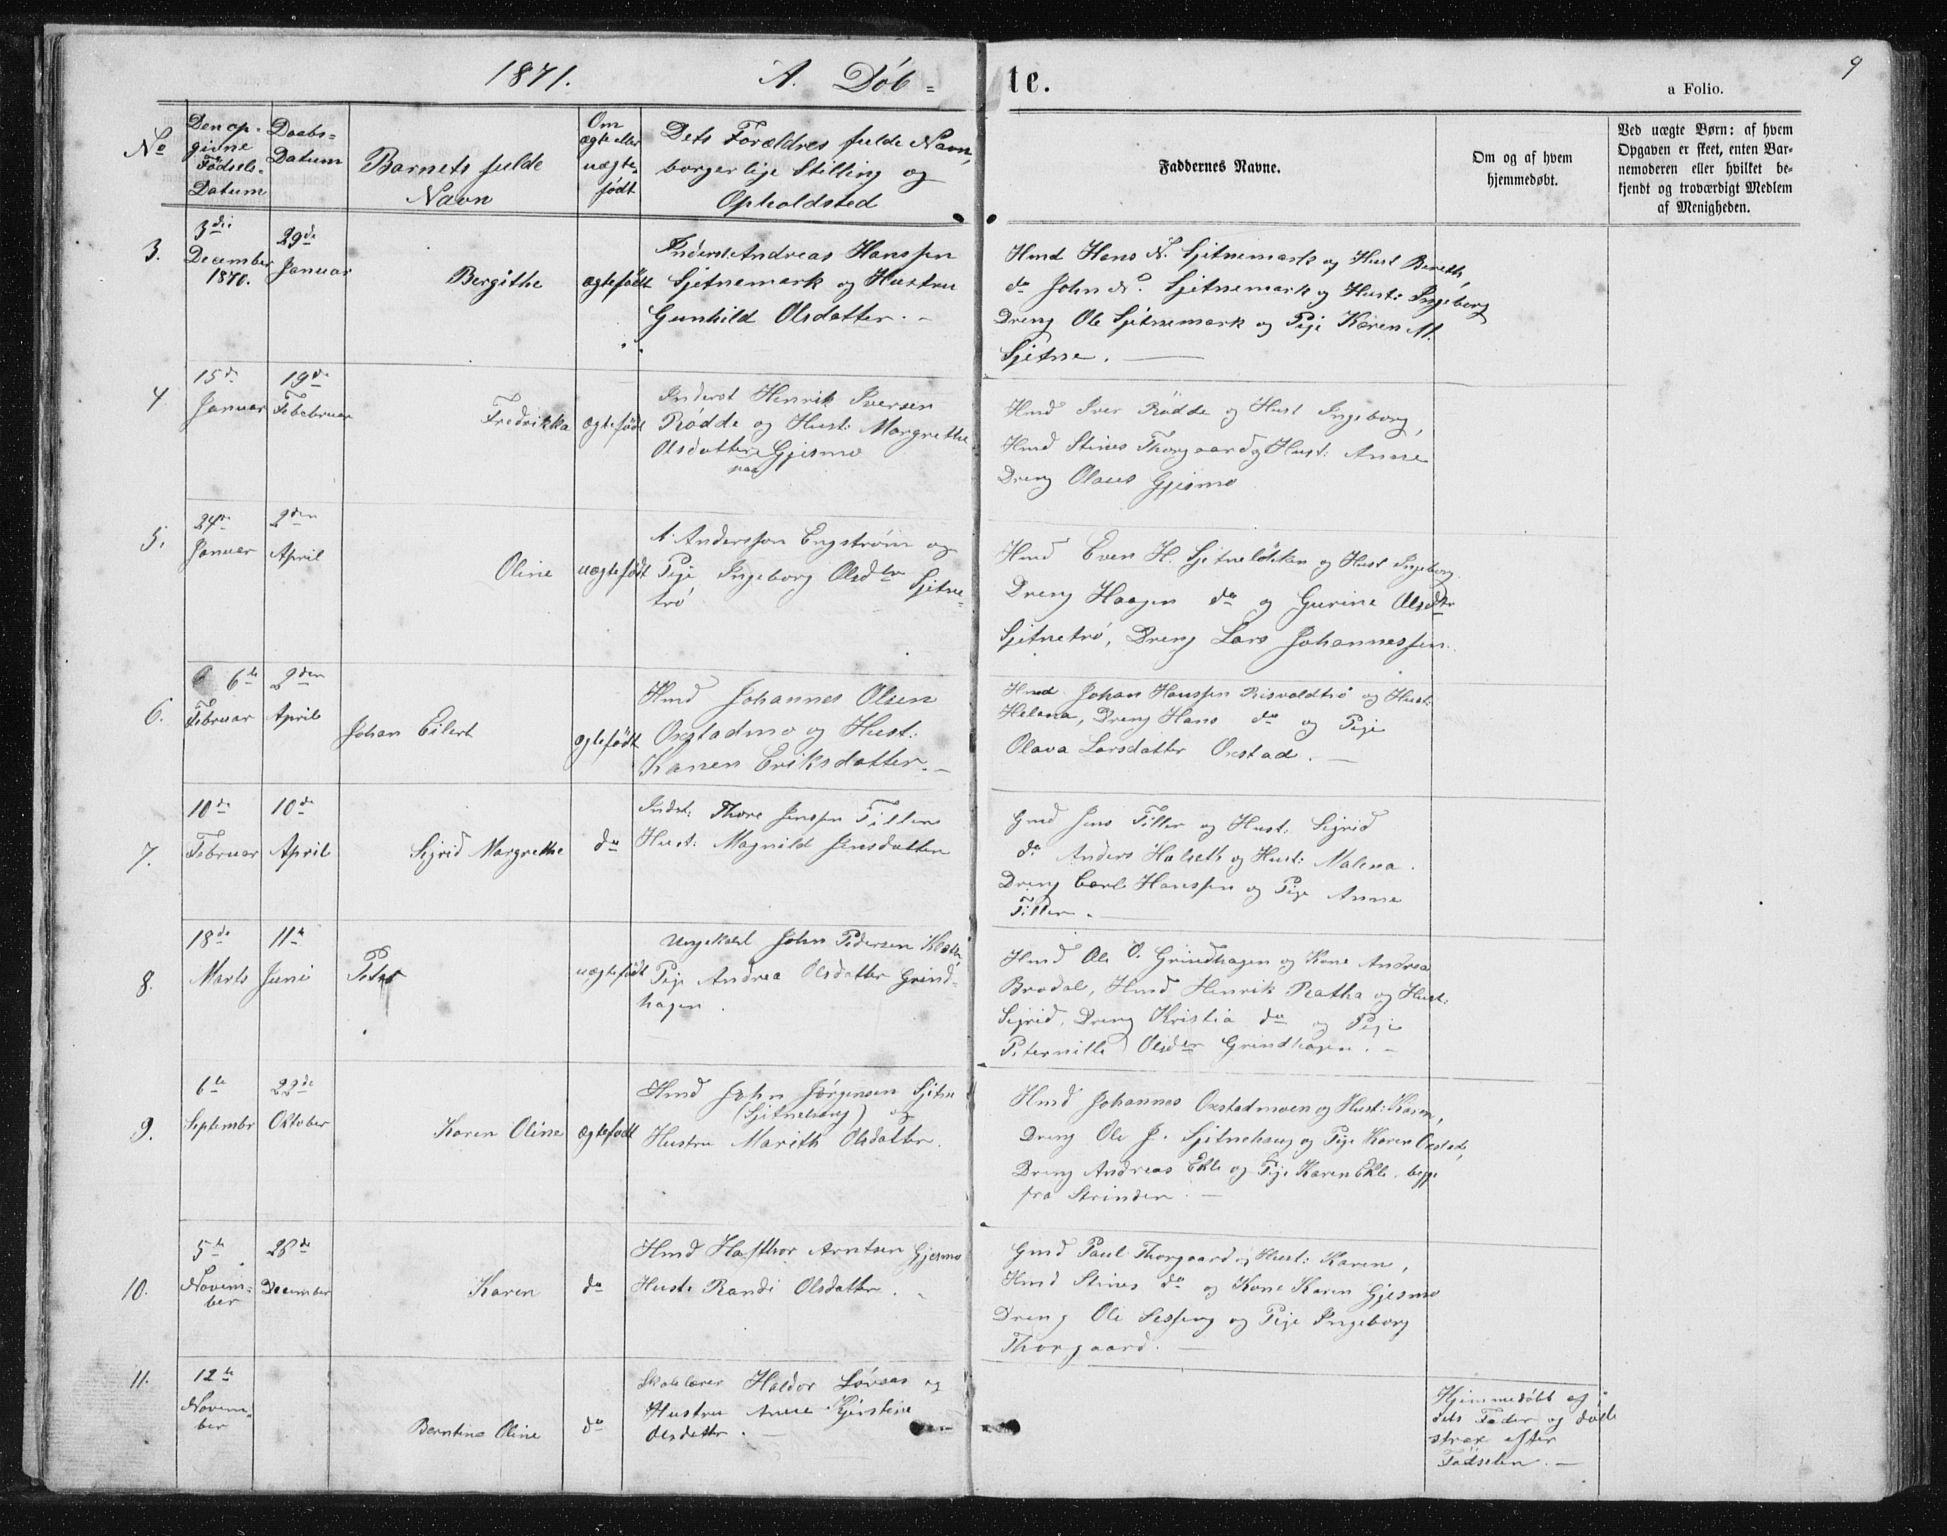 1871. A. Döb=
te.
9
a Folio.
No
Den op-
givne
Fødsels-
Datum
Daabs-
Datum
Barnets fulde
Navn
Om
ægte eller
uægte-
født
Dets Forældres fulde Navn,
borgerlige Stilling og
Opholdsted
Faddernes Navne.
Om og af hvem
hjemmedøbt.
Ved uægte Børn: af hvem
Opgaven er skeet, enten Bar-
nemoderen eller hvilket be-
kjendt og troværdigt Medlem
af Menigheden.
3.
3die
December
1870.
29de
Januar
Bergithe
ægtefödt
Inderst Andreas Hanssen
Sjetnemark og Hustru
Gunhild Olsdatter. -
Hmd Hans N. Sjetnemark og Hust Bereth,
do John N. Sjetnemark og Hust: Ingeborg
Dreng Ole Sjetnemark og Pige Karen M.
Sjetne.
4
15de
Januar
19de
Febebruar
Fredrikka
ægtefödt
Inderst Henrik Iversen
Rödde og Hust: Margrethe
Olsdatter Gjesmo
Hmd Iver Rödde og Hust Ingeborg,
Hmd Stines Thorgaard og Hust: Anne
Dreng Olaus Gjesmo
5.
24de
Januar
2den
April
Oline
uægtefödt
A. Anderssen Engström og
Pige Ingeborg Olsdtr Sjetne-
trö
Hmd Even H. Sjetnelökken og Hust Ingeborg
Dreng Haagen do og Gurine Olsdtr
Sjetnetrö, Dreng Lars Johannessen.
6.
6te
Februar
2den
April
Johan Eilert
ægtefödt
Hmd Johannes Olsen
Oxstadmo og Hust:
Karen Eriksdatter. -
Hmd Johan Hanssen Risvoldtrö og Hust:
Helena, Dreng Hans do og Pige
Olava Larsdatter Oxstad. -
7.
10de
Februar
10de
April
Sigrid Margrethe
do
Indst: Thore Jenssen Tiller
Hust: Magnild Jensdatter
Gmd Jens Tiller og Hust: Sigrid
do Anders Halseth og Hust: Malena.
Dreng Carl Hanssen og Pige Anne
Tiller.
8.
18de
Marts
11te
Juni
Peter
uægtefödt
Ungekarl John Pedersen
Pige Andrea Olsdatter Grind-
hagen
Hmd Ole O. Grindhagen og Kone Andrea
Brødal, Hmd Henrik Ratha og Hust:
Sigrid, Dreng Kristia do og Pige
Peternille Olsdtr Grindhagen. -
9.
6te
Septembr
22de
Oktober
Karen Oline
ægtefödt
Hmd John Jörgensen Sjetne
(Sjetnehaug) og
Hustru Marith Olsdatter.
Hmd Johannes Oxstadmoen og Hust: Karen,
Dreng Ole J. Sjetnehaug og Pige Karen Oxstad,
Dreng Andreas Ekle og Pige Karen Ekle, begge
fra Strinden. -
10.
5te
Novem-
ber
26de
December
Karen
do
Hmd Hafthor Arntsen Gjesmo
Hust: Randi Olsdatter. -
Gmd Paul Thorgaard og Hust: Karen,
Hmd Stines do og Kone Karen Gjesmo
Dreng Ole Sesseng og Pige Ingeborg
Thorgaard. -
11.
12te
Novem-
ber
Berntine Oline
do
Skolelærer Haldor Løvaas og
Hustru Anne Kjerstine
Olsdattr. -
Hjemmedöbt af
dets Fader og döde
strax efter
Födselen. -